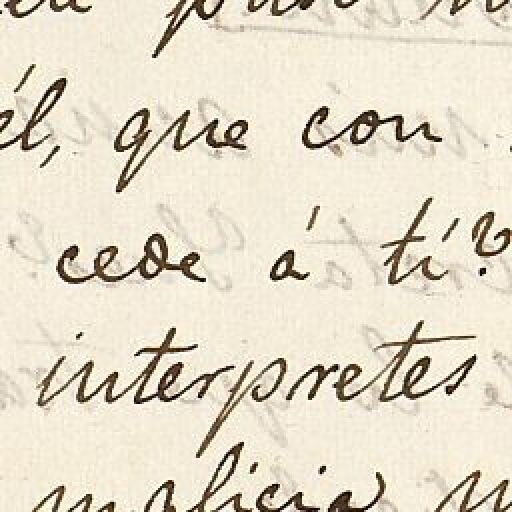 él, que con
cede á tí?
interpretes
malicia